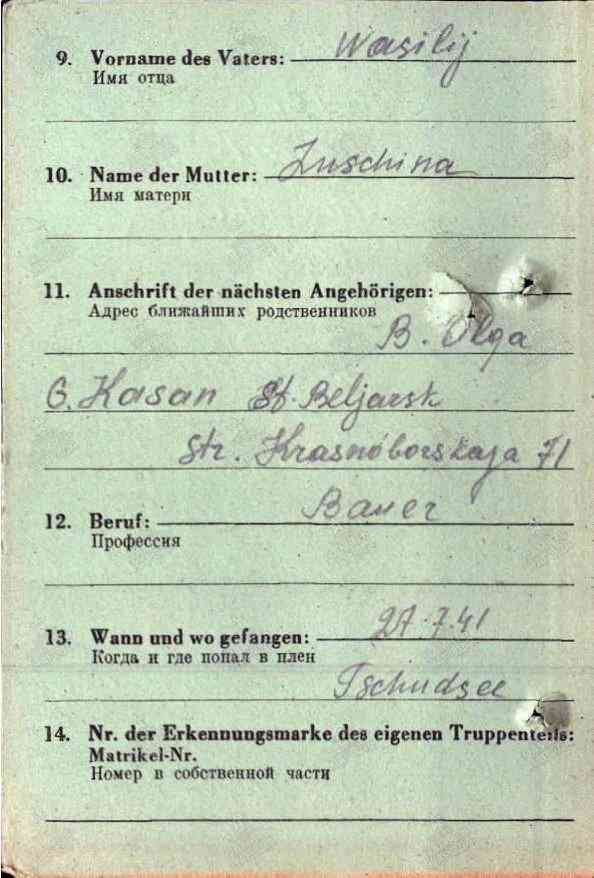 9. Vorname des Vaters: Wasilij
Имя отца
10. Name der Mutter: Luschina
Имя матери
11. Anschrift der nächsten Angehörigen:
Адрес ближайших родственников
B. Olga
G. Kasan St. Beljarsk
Str. Krasnoborskaja 71
12. Beruf: Bauer
Профессия
13. Wann und wo gefangen: 27.7.41
Когда и где попал в плен
Tschudsee
14. Nr. der Erkennungsmarke des eigenen Truppenteils:
Matrikel-Nr.
Номер в собственной части